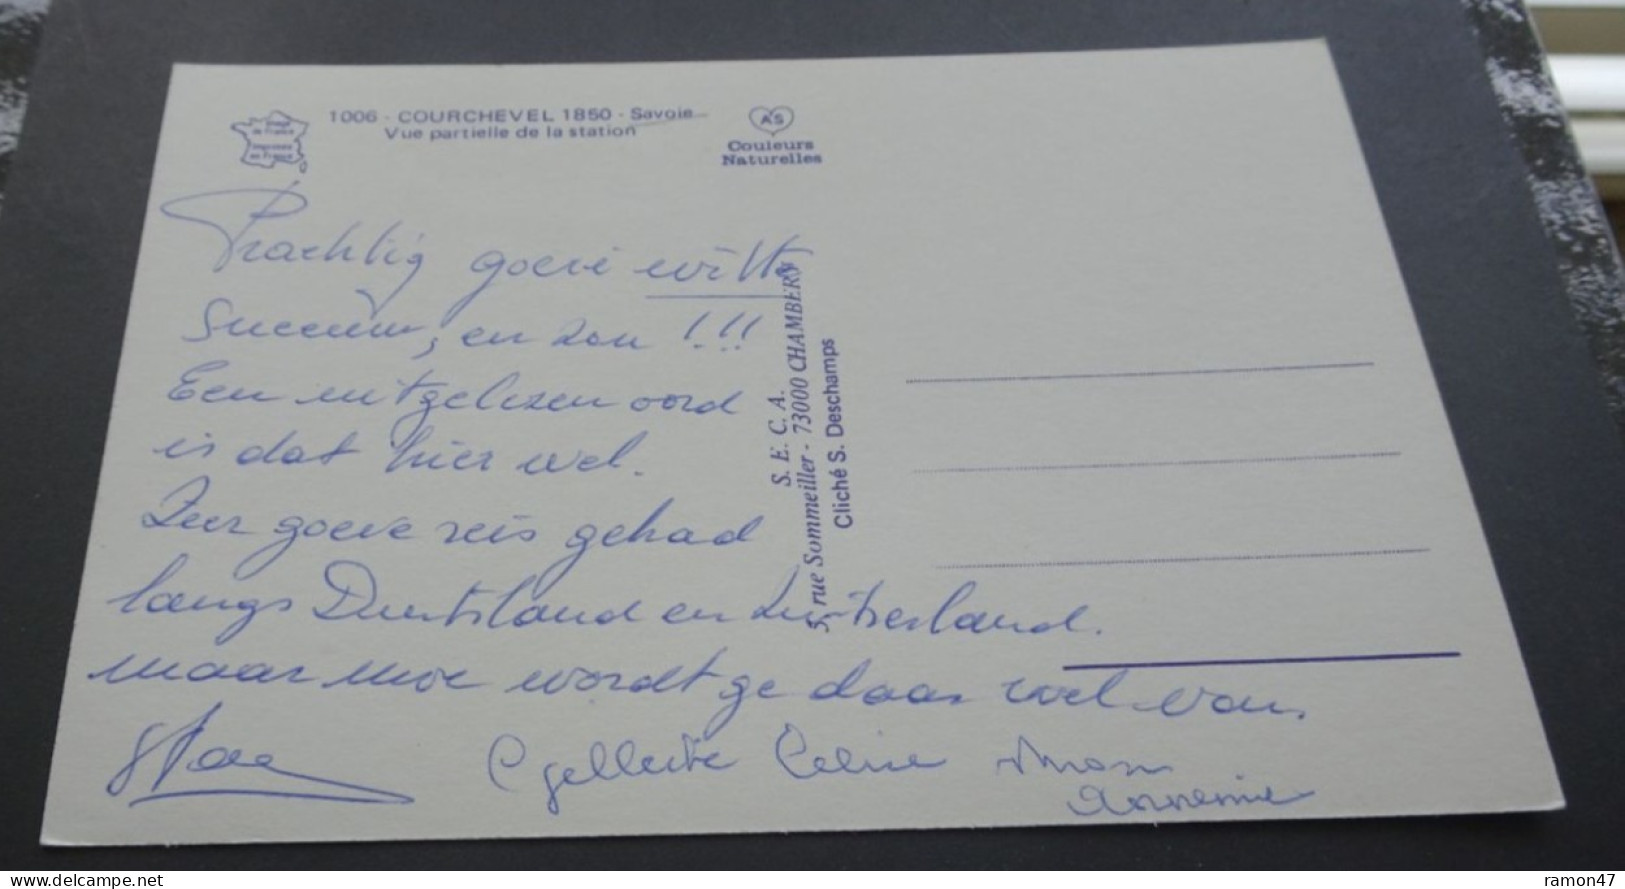 1006 - COURCHEVEL 1850 - Savoie
Vue partielle de la station
Image
de France
Imprimée
en France
A'S
Couleurs
Naturelles
Prachtig goeie witte
sneeuw, en zon !!!
Een uitgelezen oord
is dat hier wel.
Zeer goeie reis gehad
langs Duitsland en Zwitserland.
maar moe wordt ge daar wel van.
Celine
Annemie
S. E. C. A.
5, rue Sommeiller - 73000 CHAMBERY
Cliché S. Deschamps
Delcampe.net
ramon47